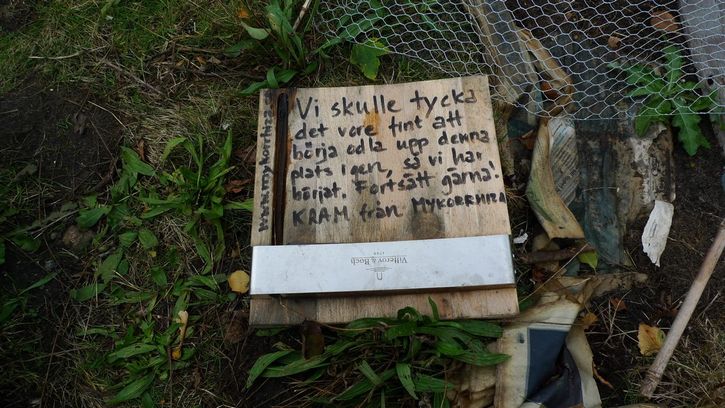 Vi skulle tycka
det vore fint att
börja odla upp denna
plats igen, så vi har
börjat. Fortsätt gärna!
KRAM från MYKORRHIZA
Villeroy & Boch
1748